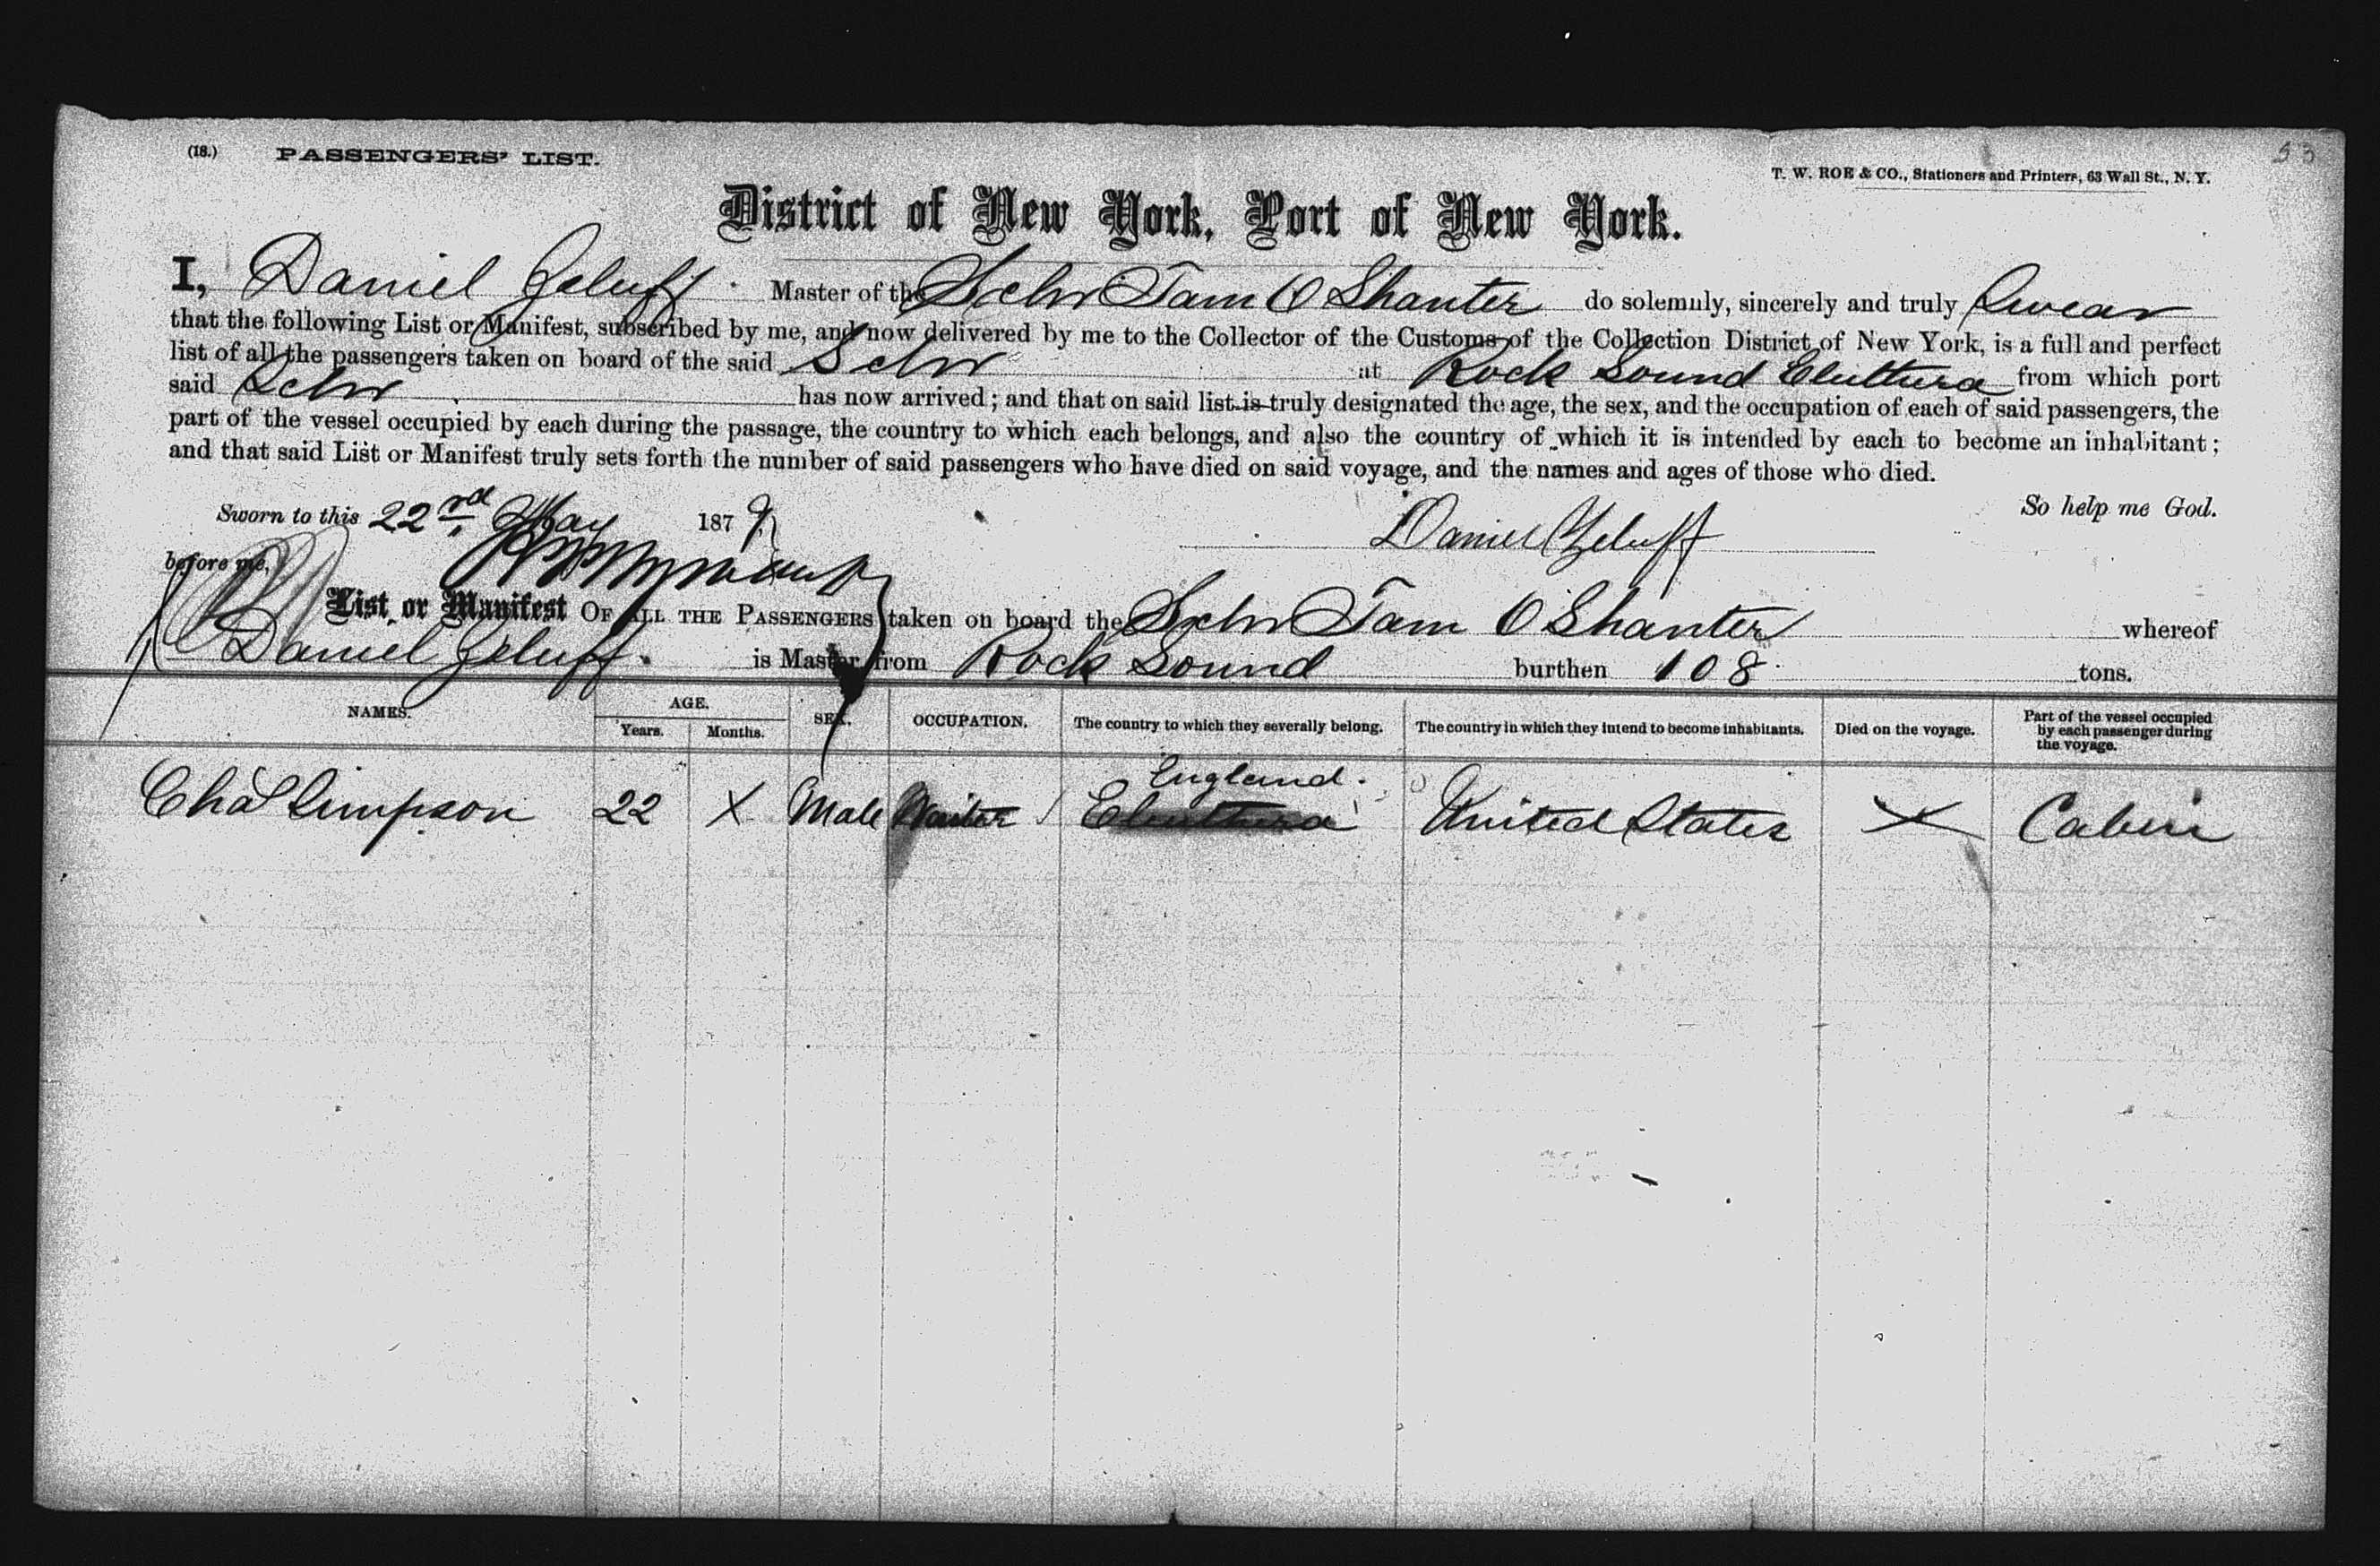 (18.) PASSENGERS' LIST.
53
T. W. ROE & CO., Stationers and Printers, 63 Wall St., N. Y.
District of New York, Port of New York.
I, Daniel Zeluff Master of the Schr Tam O Shanter do solemnly, sincerely and truly Swear
that the following List or Manifest, subscribed by me, and now delivered by me to the Collector of the Customs of the Collection District of New York, is a full and perfect
list of all the passengers taken on board of the said Schr at Rock Sound Eluthera from which port
said Schr has now arrived; and that on said list is truly designated the age, the sex, and the occupation of each of said passengers, the
part of the vessel occupied by each during the passage, the country to which each belongs, and also the country of which it is intended by each to become an inhabitant;
and that said List or Manifest truly sets forth the number of said passengers who have died on said voyage, and the names and ages of those who died.
So help me God.
Sworn to this 22nd May 1879
Daniel Zeluff
before me,
List or Manifest OF ALL THE PASSENGERS taken on board the Schr Tam O Shanter whereof
Daniel Zeluff is Master from Rock Sound burthen 108 tons.
NAMES. AGE. Years. Months. SEX. OCCUPATION. The country to which they severally belong. The country in which they intend to become inhabitants. Died on the voyage. Part of the vessel occupied by each passenger during the voyage.
England.
Chas Simpson 22 X Male Waiter Eleuthera United States X Cabin